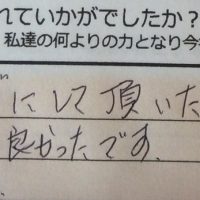 れていかがでしたか?
私達の何よりの力となり今
にして頂いた
良かったです.